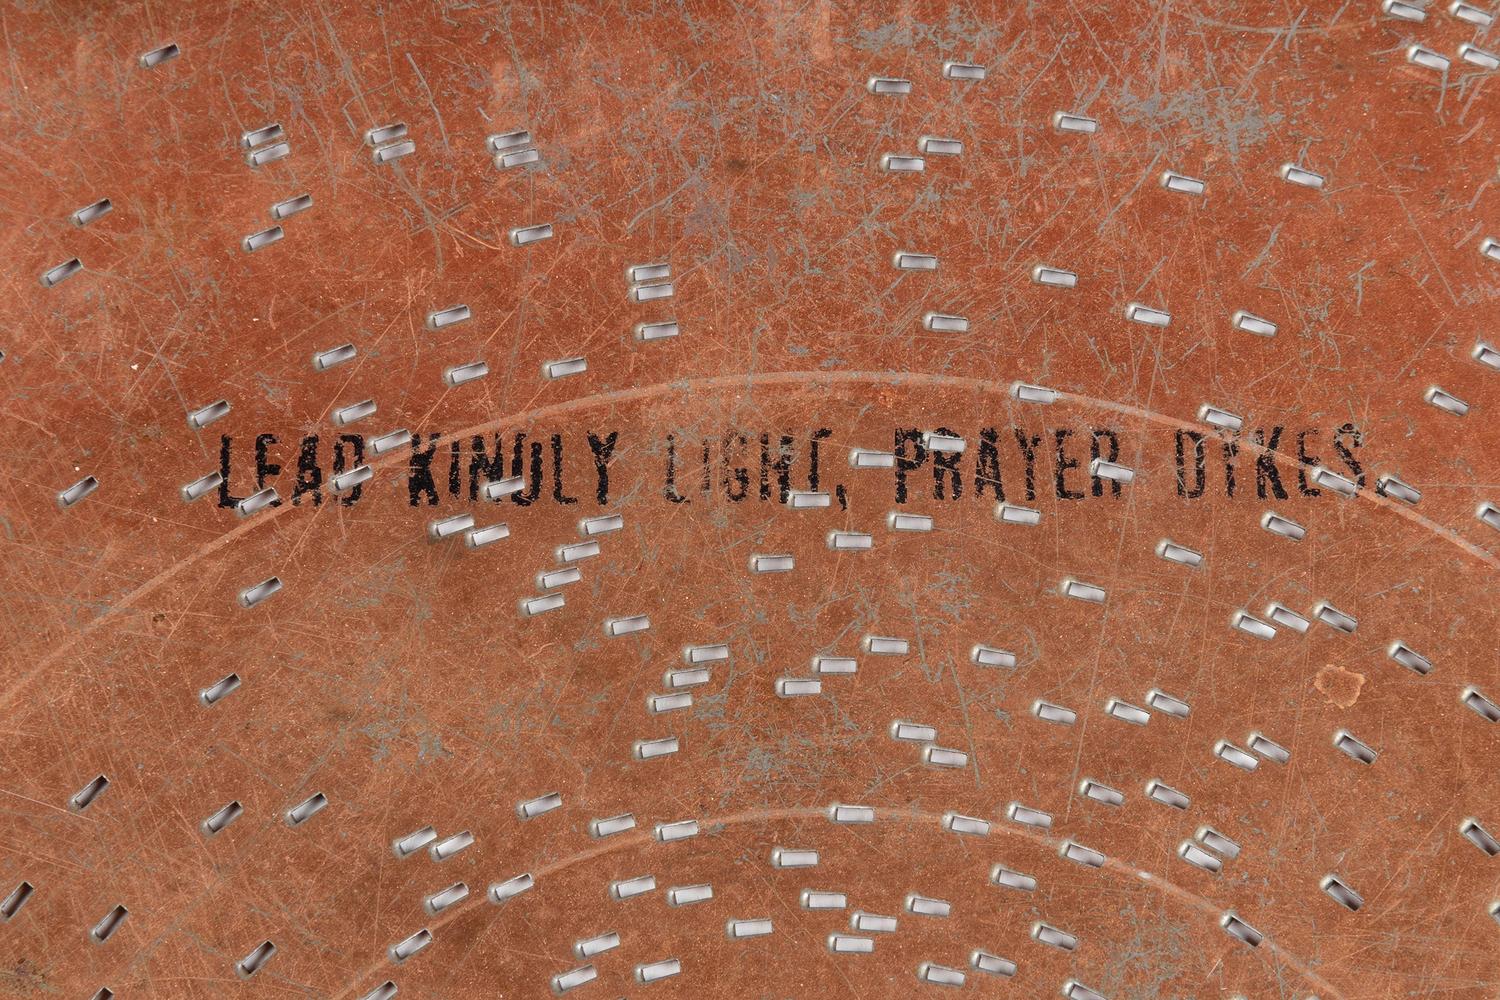 LEAD KINDLY LIGHT, PRAYER DYKES.